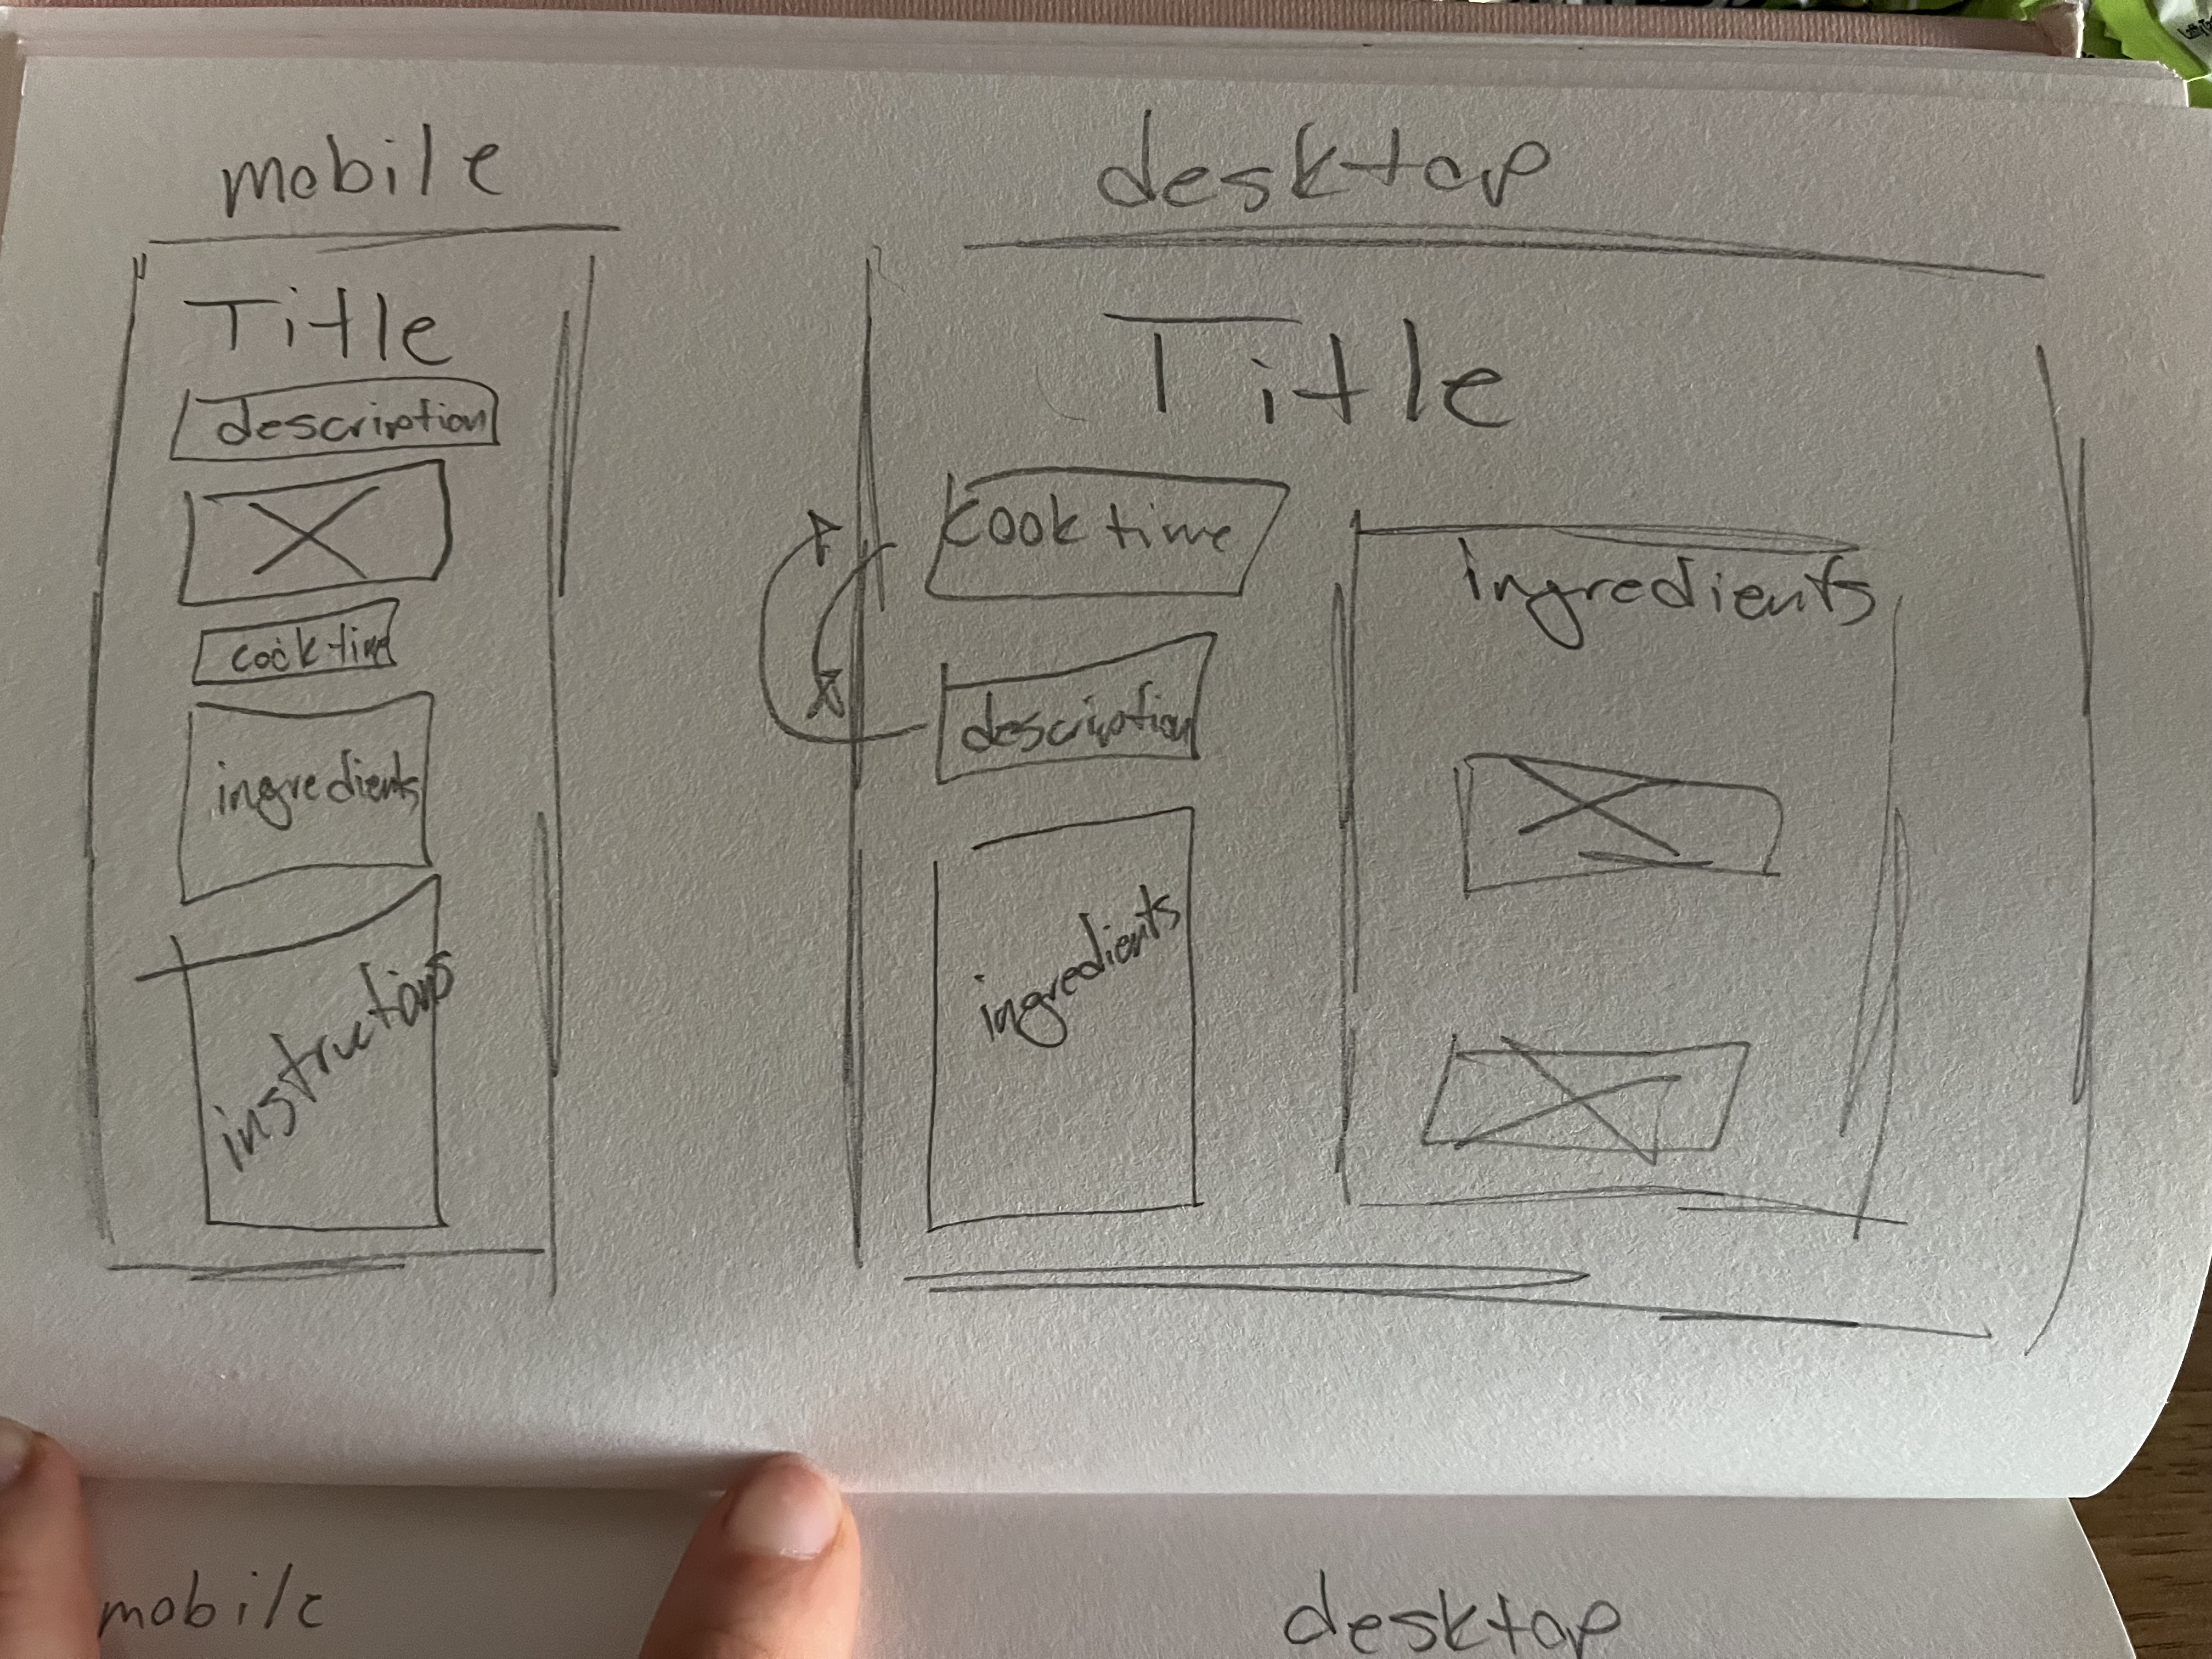 mobile
Title
description
cook time
ingredients
instructions
desktop
Title
cook time
description
ingredients
ingredients
mobile
desktop